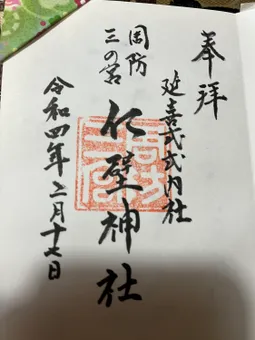 奉拝
延喜式内社
周防
三の宮
仁壁神社
令和四年二月十七日